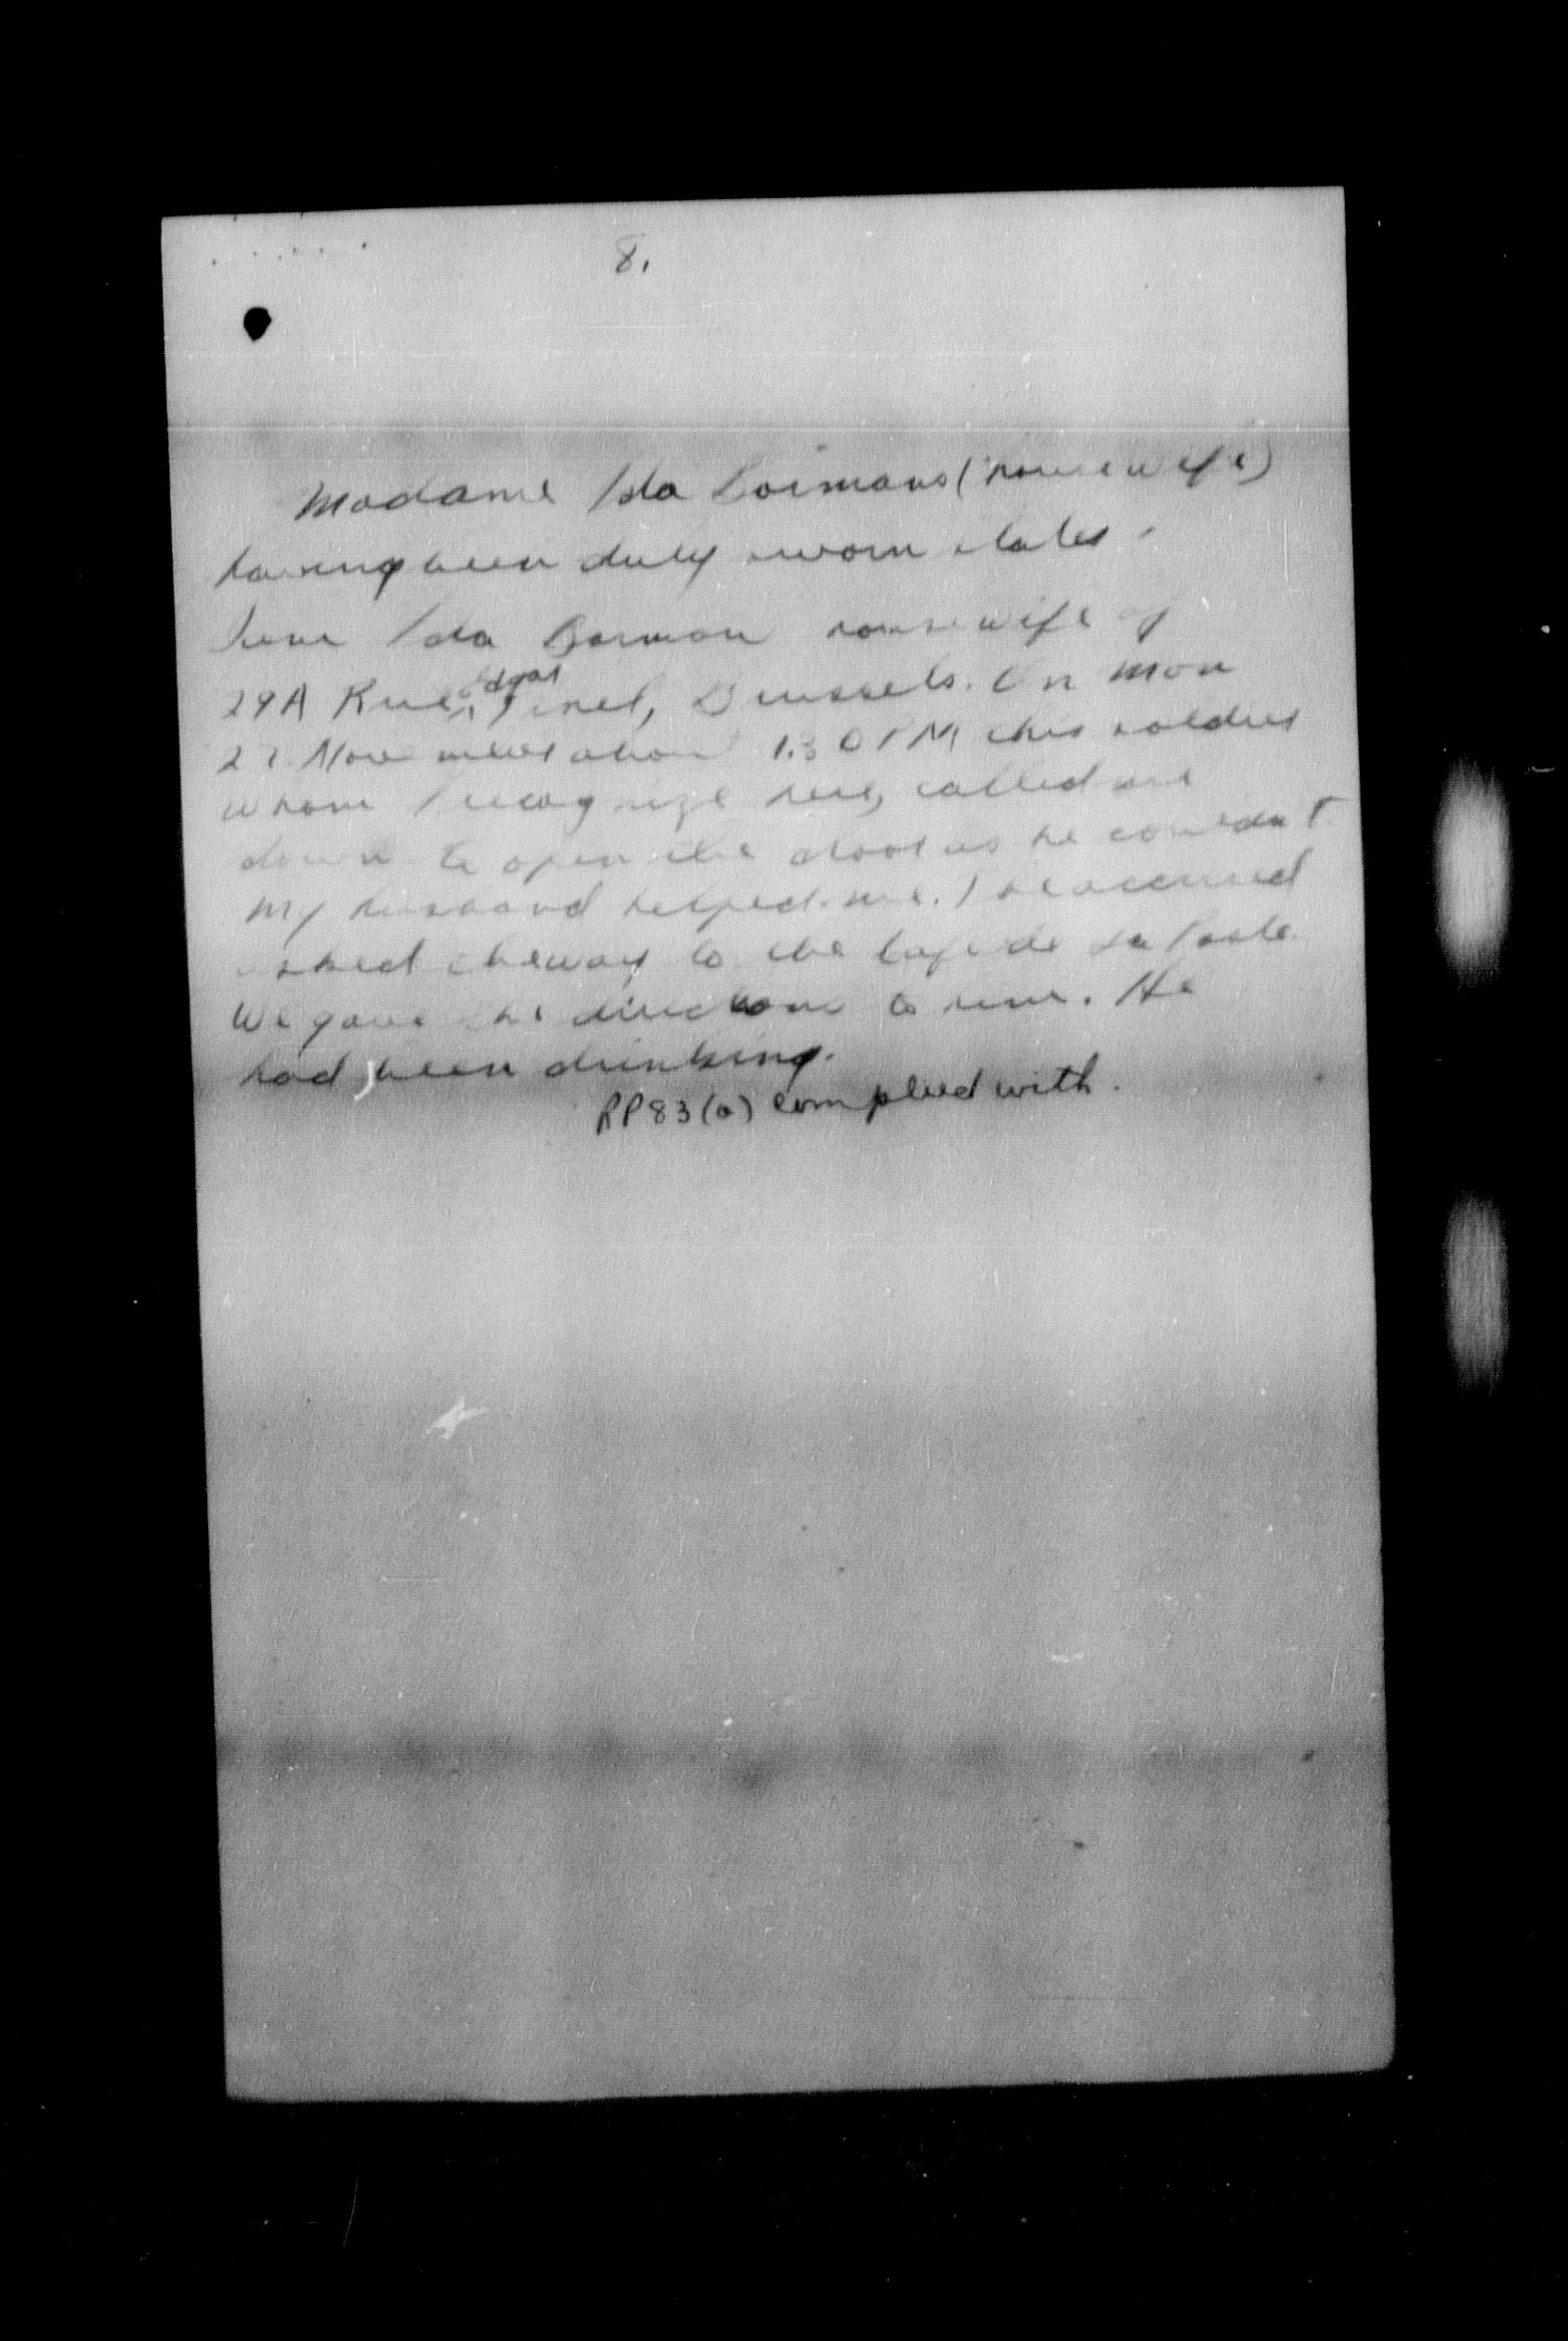 8.
Madame Ida Boimans (housewife)
having been duly sworn states.
I am Ida housewife of
29A Rue Edgar Tinel, Brussels. On Mon
27 November about 1.30 PM this soldier
whom I recognize here, called me
down to open the door as he couldn't
My husband helped me. The accused
asked the way to the Cafe de la Poste.
We gave the directions to him. He
had been drinking.
RP83(a) complied with.